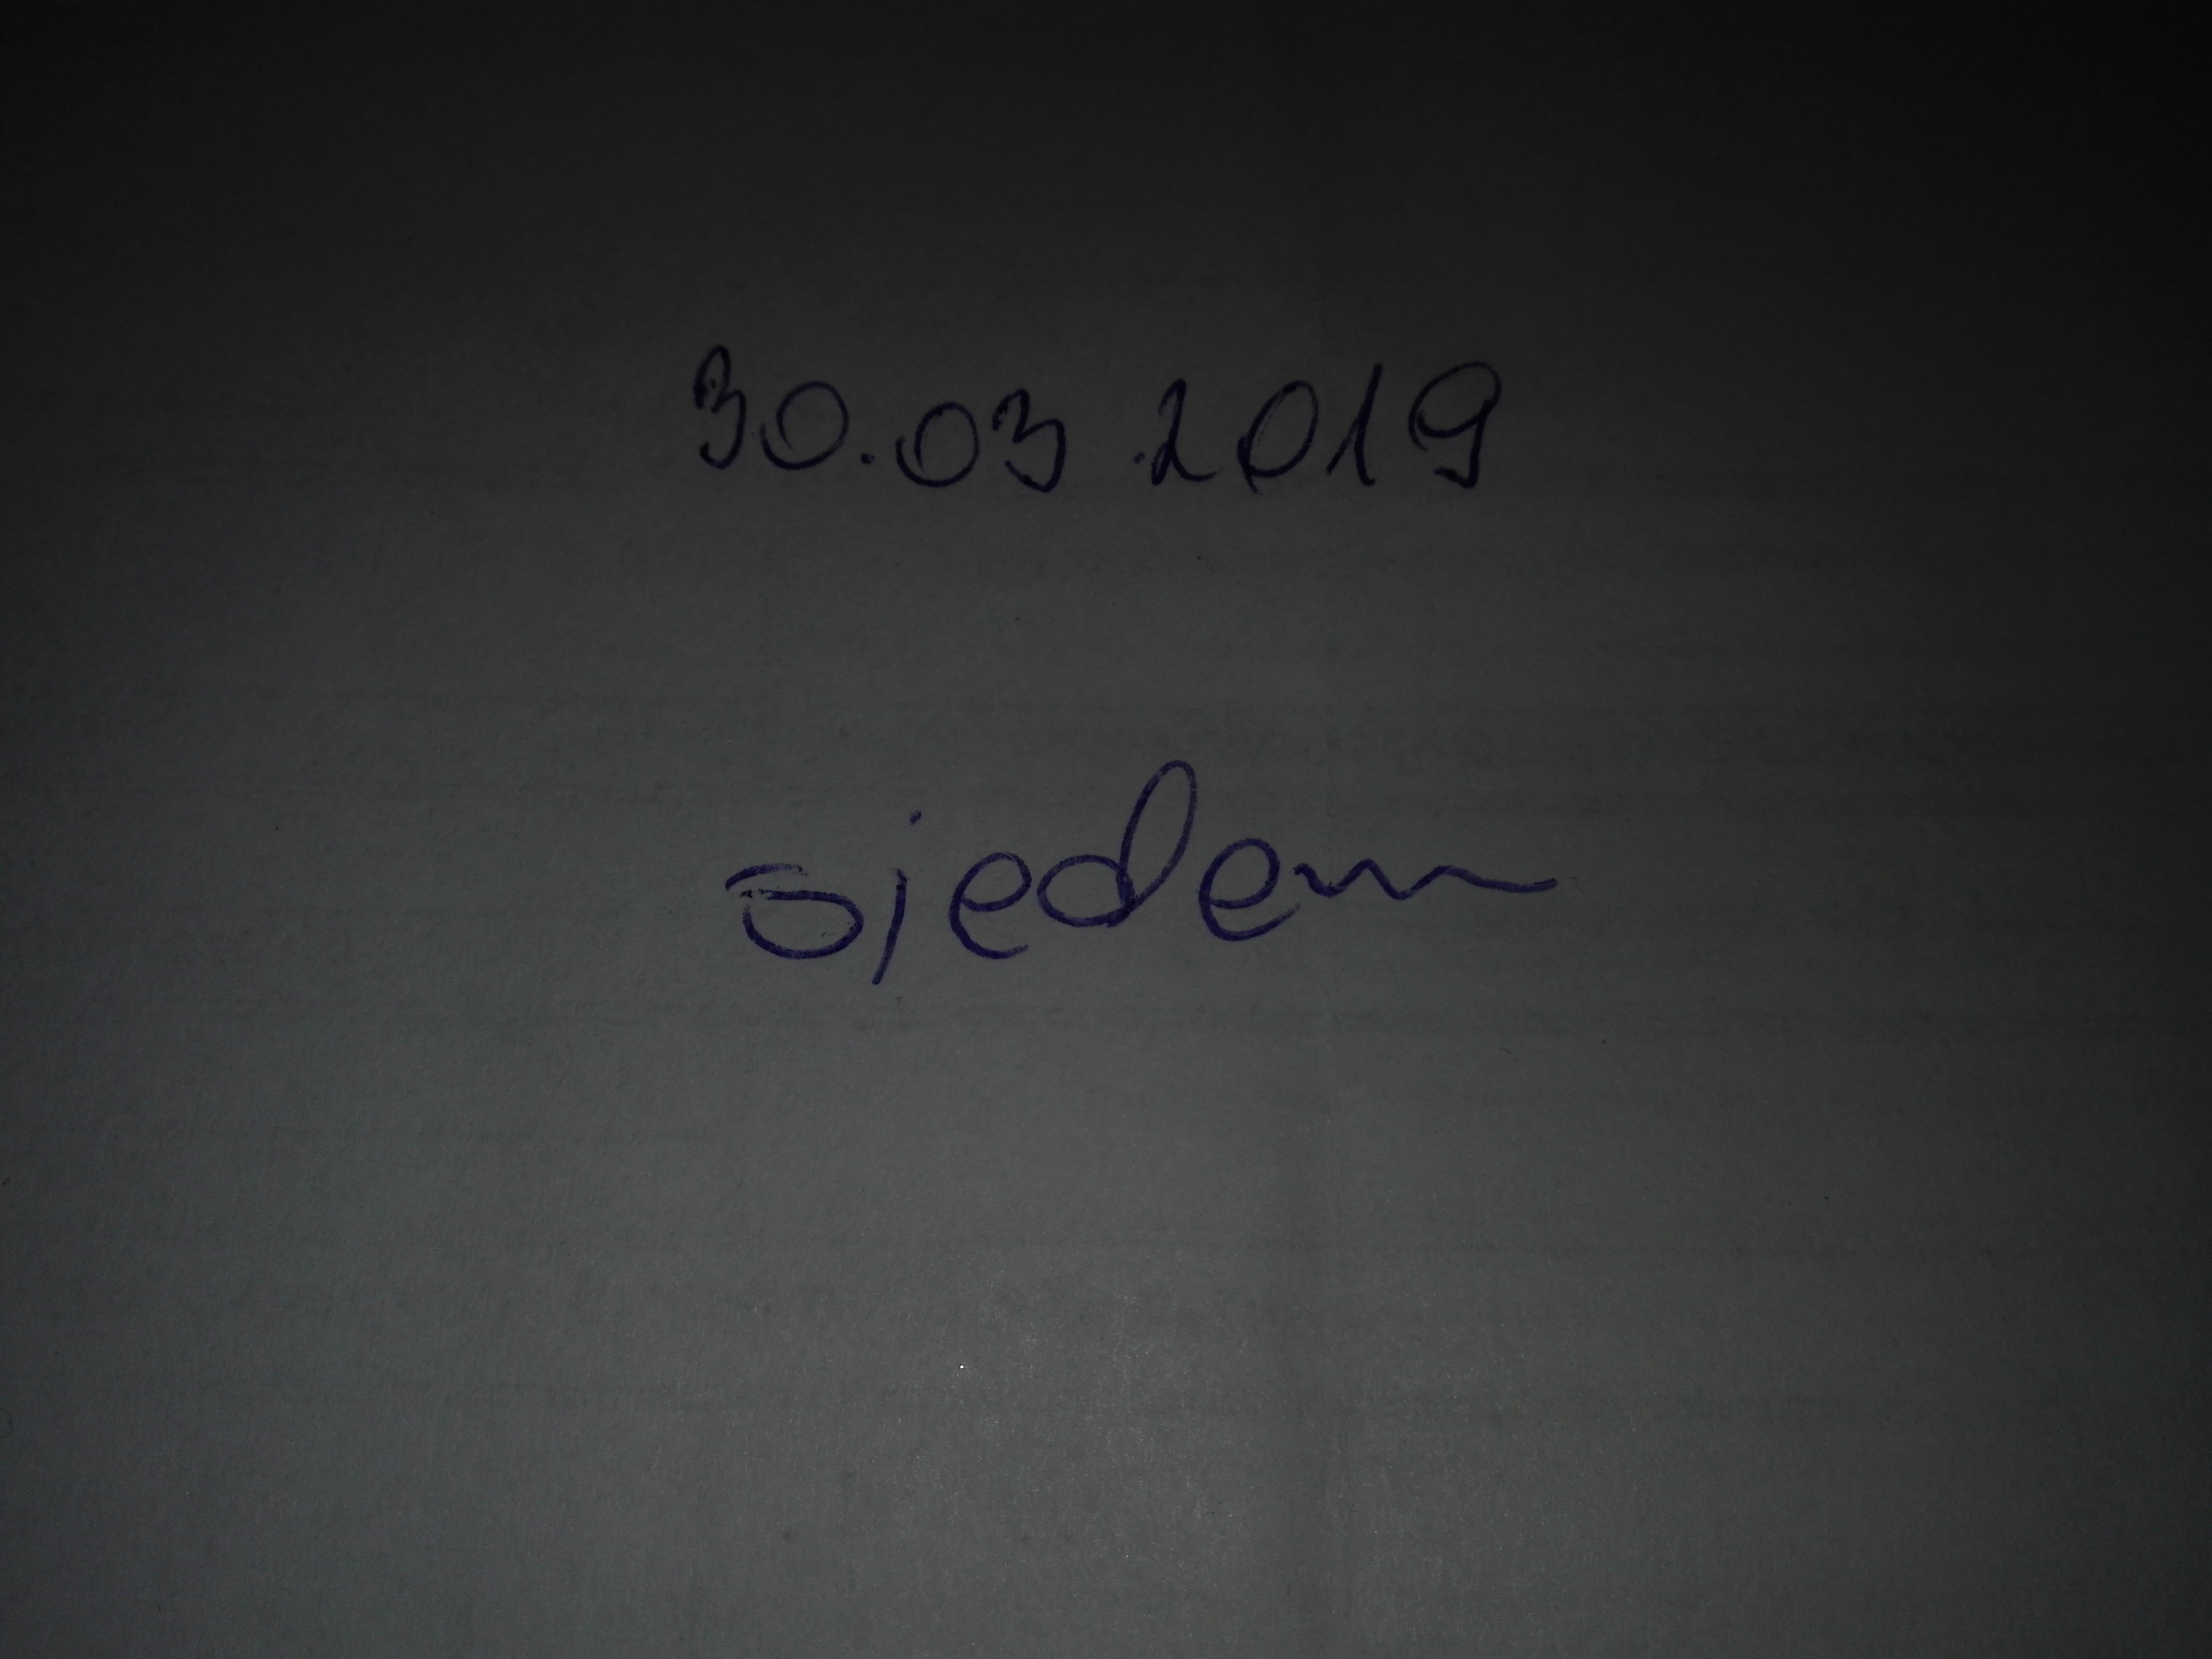 30.03.2019
siedem